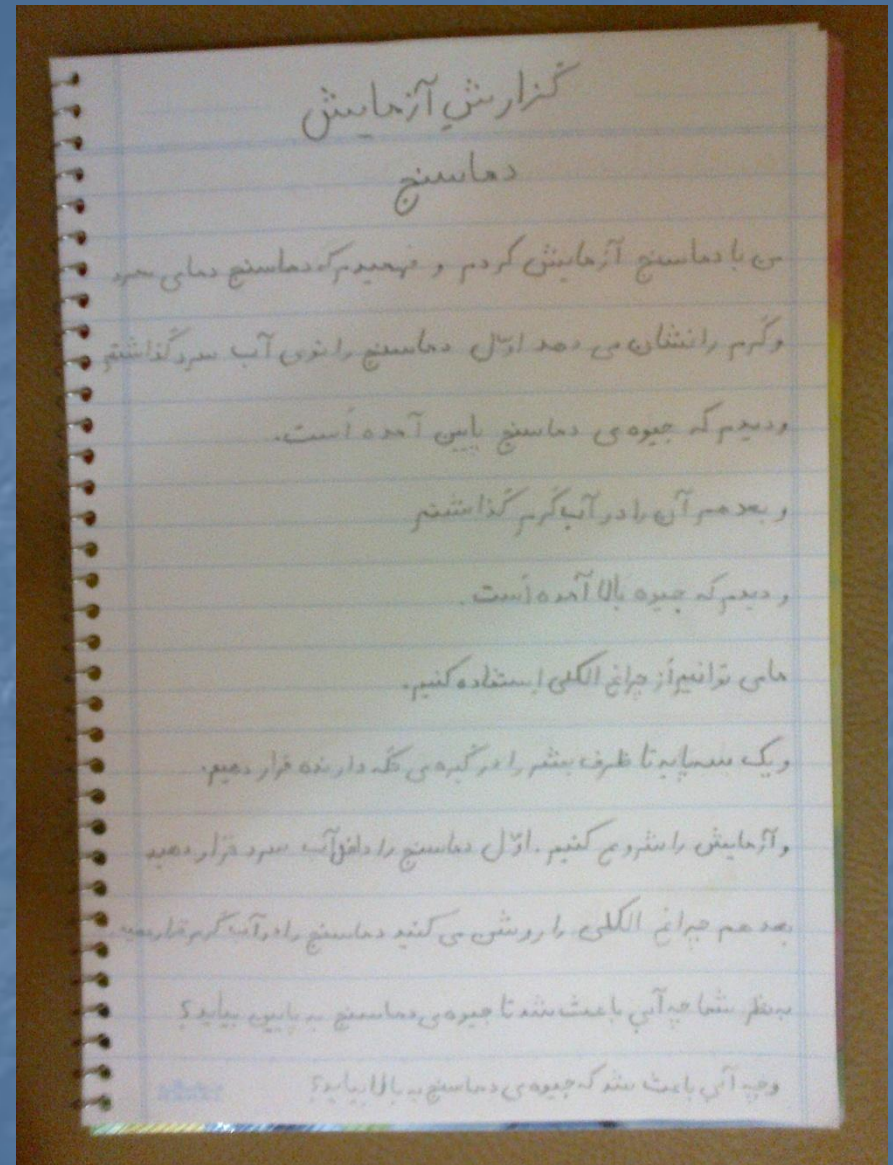 گزارش آزمایش
دماسنج
من با دماسنج آزمایش کردم و فهمیدم که دماسنج دمای سرد
و گرم را نشان می دهد اوّل دماسنج را توی آب سرد گذاشتم
و دیدم که جیوه ی دماسنج پایین آمده است.
و بعد هم آن را در آب گرم گذاشتم
و دیدم که جیوه بالا آمده است.
ما می توانیم از چراغ الکلی استفاده کنیم.
و یک سه پایه تا ظرف بشر را در گیره ی نگه دارنده قرار دهیم.
و آزمایش را شروع کنیم. اوّل دماسنج را داخل آب سرد قرار دهید
بعد هم چراغ الکلی را روشن می کنید دماسنج را در آب گرم قرار دهید.
به نظر شما چه آبی باعث شد تا جیوه ی دماسنج به پایین بیاید؟
و چه آبی باعث شد که جیوه ی دماسنج به بالا بیاید؟